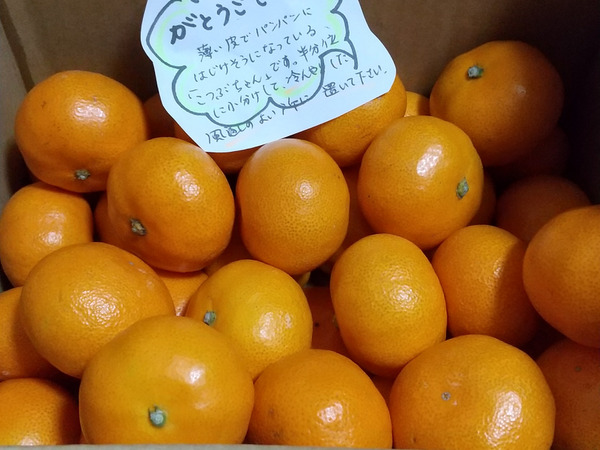 がとうご
薄い皮でパンパンに
はじけそうになっている、
「こつぶちゃん」です。半分位
に小分けして、冷んやりした
風通しのよい所に置いて下さい。